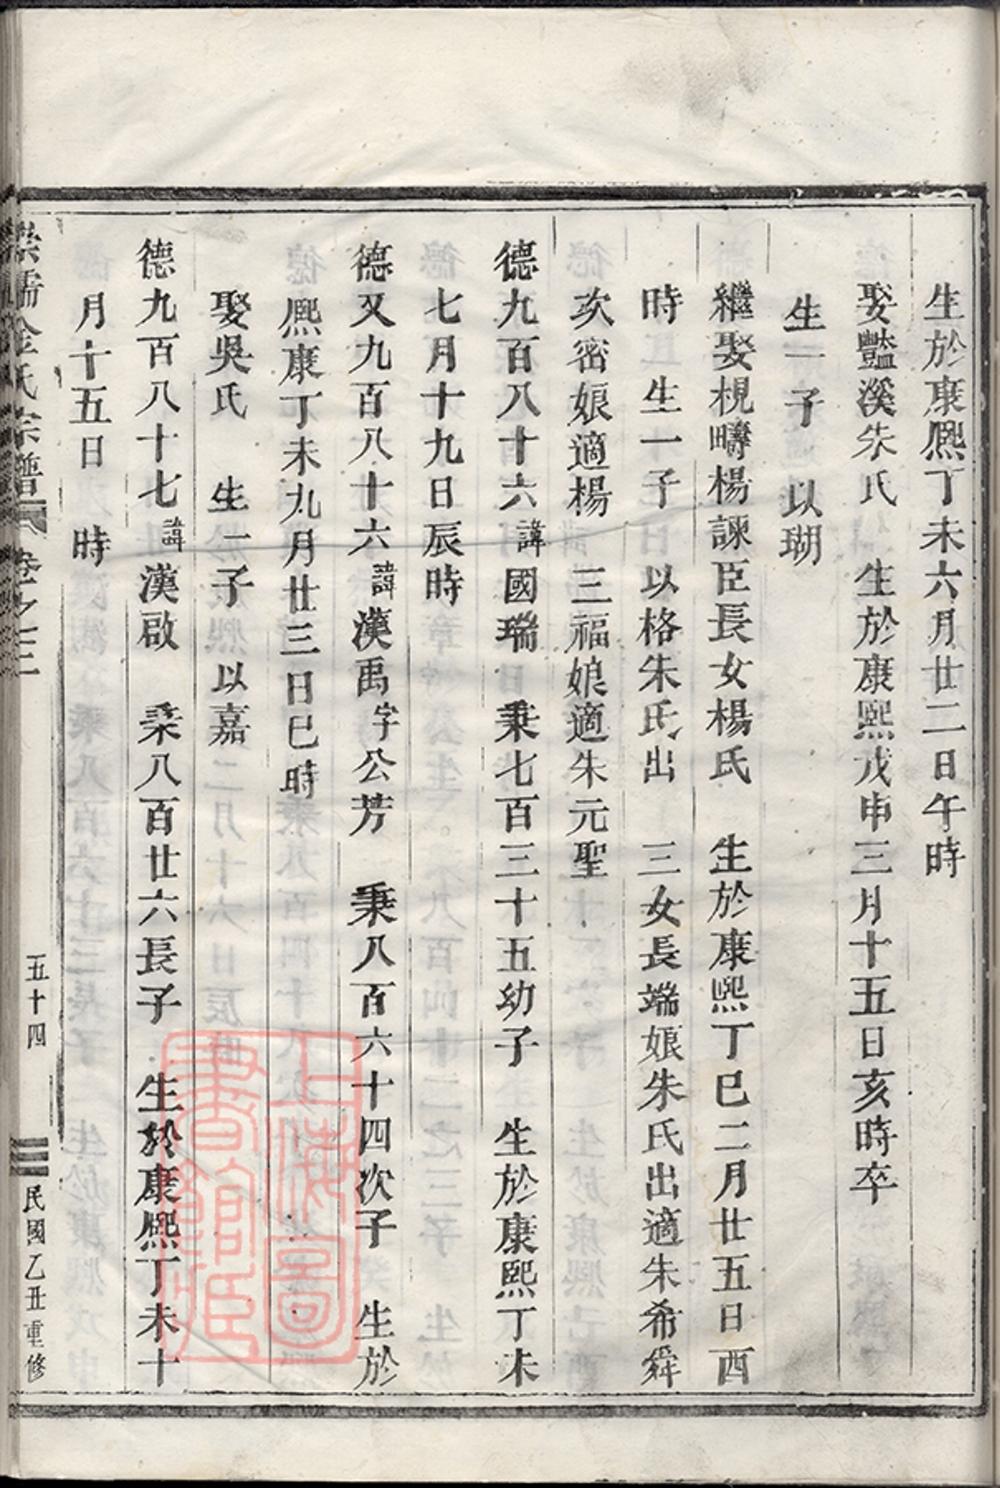 生於康熙丁未六月廿二日午時
娶豔溪朱氏 生於康熙戊申三月十五日亥時卒
生一子 以瑚
繼娶梘疇楊諫臣長女楊氏 生於康熙丁巳二月廿五日酉
時 生一子 以格朱氏出 三女長端娘朱氏出適朱希舜
次密娘適楊 三福娘適朱元聖
德九百八十六 諱國瑞 秉七百三十五幼子 生於康熙丁未
七月十九日辰時
德又九百八十六 諱漢禹 字公芳 秉八百六十四次子 生於
熈康丁未九月廿三日巳時
娶吳氏 生一子 以嘉
德九百八十七 諱漢啟 秉八百廿六長子 生於康熙丁未十
月十五日 時
金氏宗譜 卷之三 五十四 民國乙丑重修
上海圖書館藏